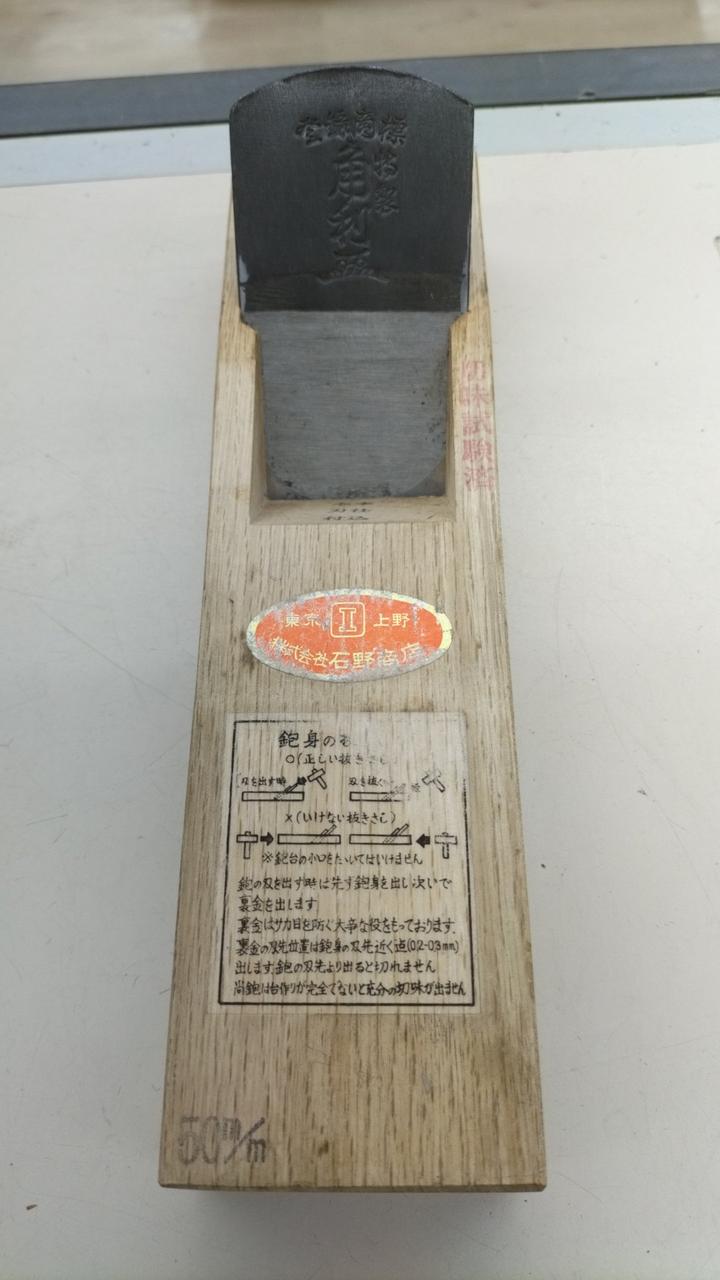 登録商標
特製
角利
切味試験済
刃仕
付込
東京 I 上野
株式会社石野商店
鉋身の
○(正しい抜きさし)
刃を出す時 刃を抜く
×(いけない抜きさし)
※鉋台の小口をたゝいてはいけません
鉋の刃を出す時は先ず鉋身を出し次いで
裏金を出します
裏金はサカ目を防ぐ大事な役をもっております.
裏金の刃先位置は鉋身の刃先近く迄(0.2-0.3mm)
出します.鉋の刃先より出ると切れません
尚鉋は台作りが完全でないと充分の切味が出ません
50m/m